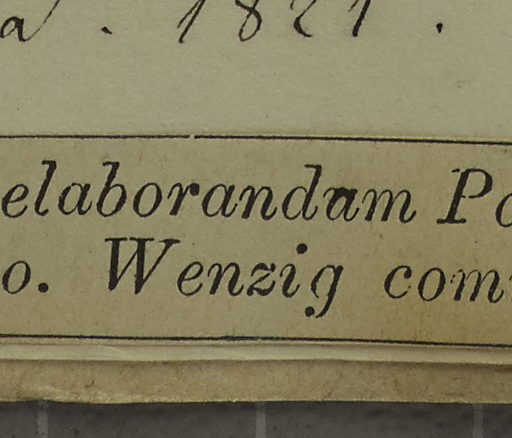 a . 1821 .
elaborandam Po
o. Wenzig com